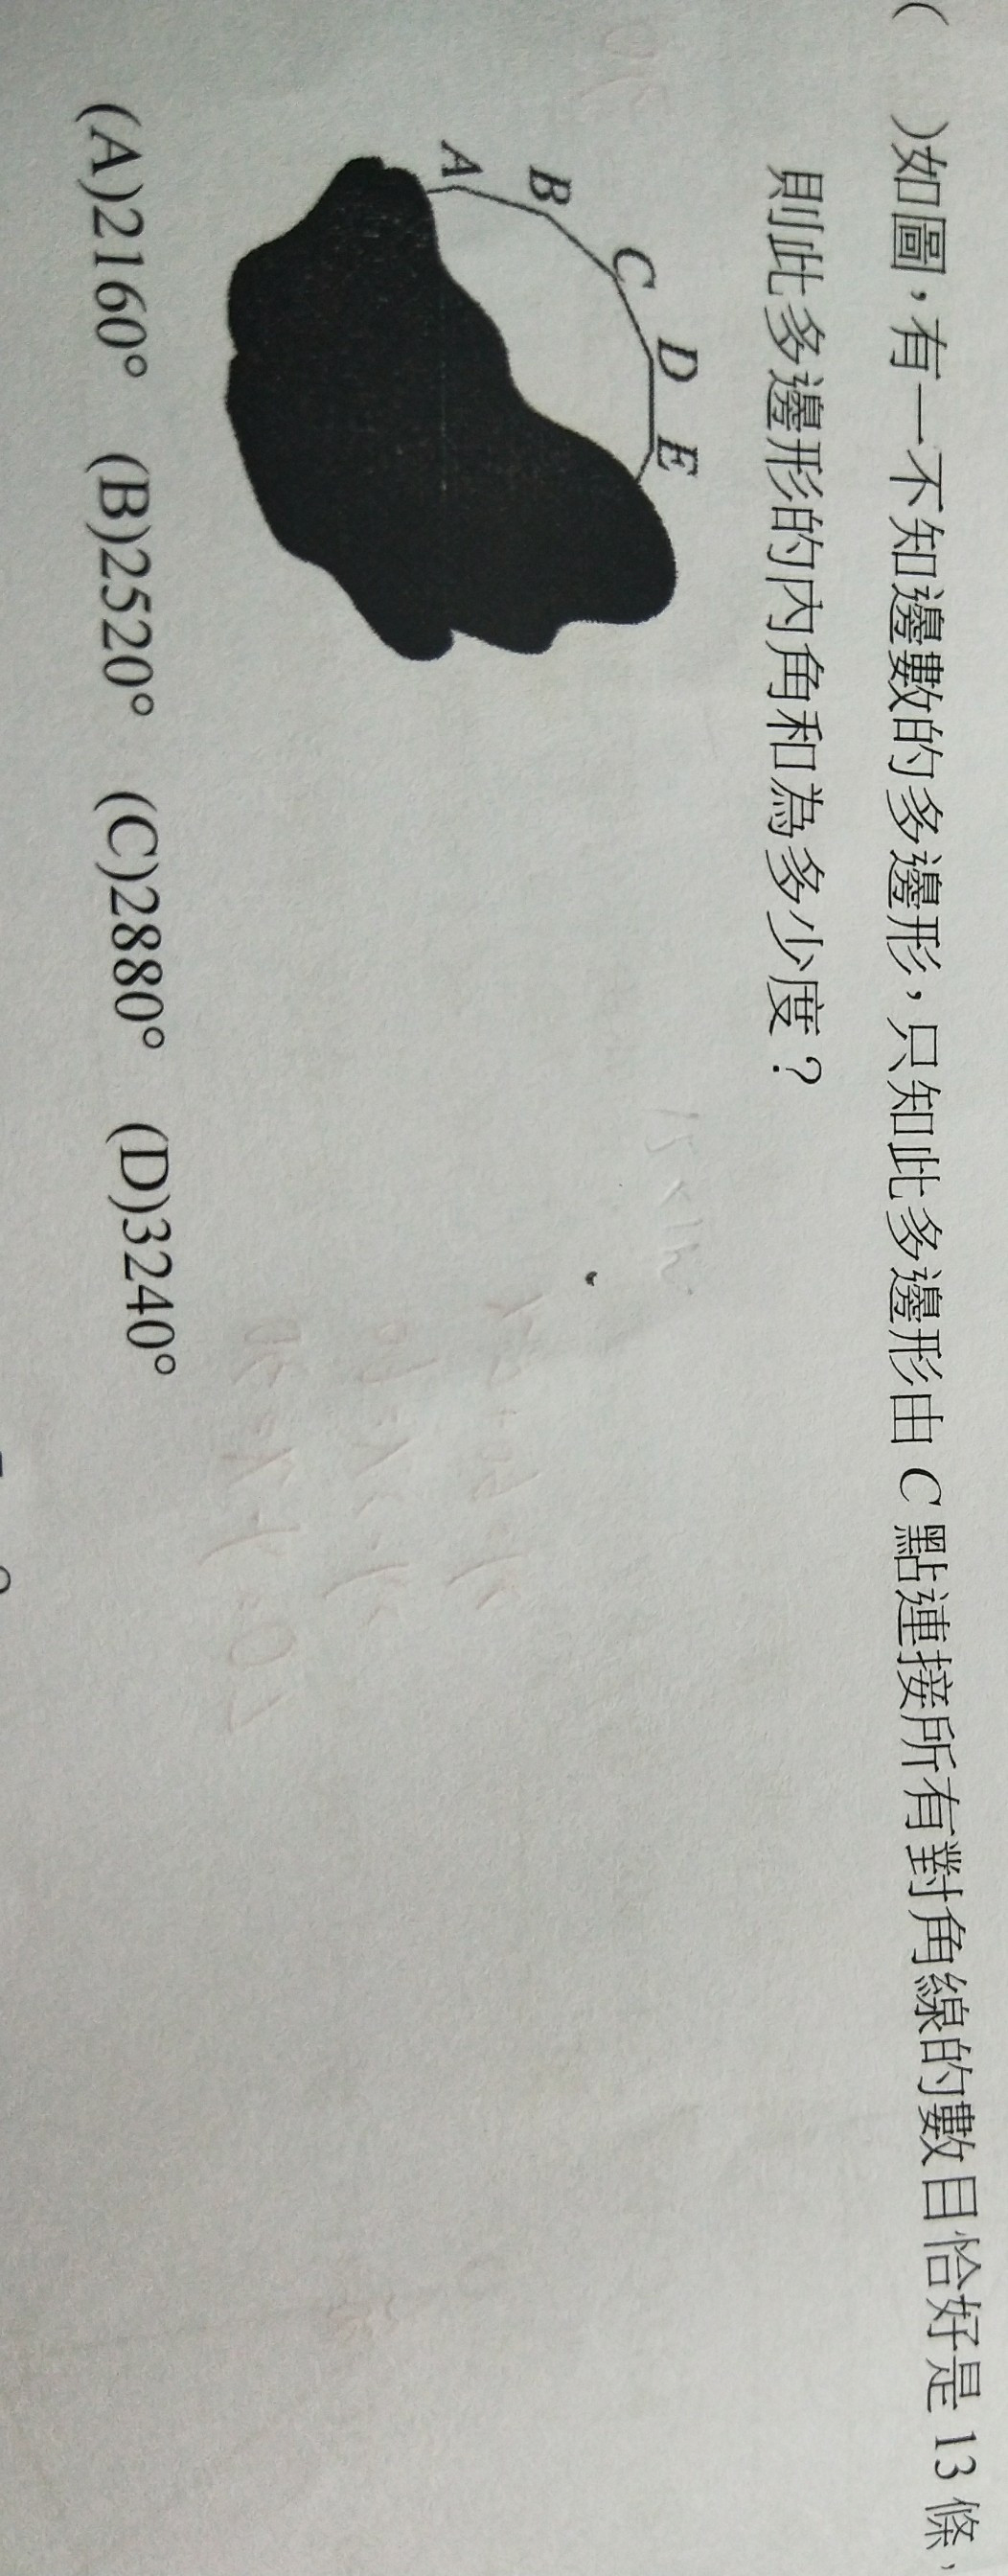 ( )如圖，有一不知邊數的多邊形，只知此多邊形由 C 點連接所有對角線的數目恰好是 13 條，
則此多邊形的內角和為多少度？
A
B
C
D
E
(A)2160° (B)2520° (C)2880° (D)3240°